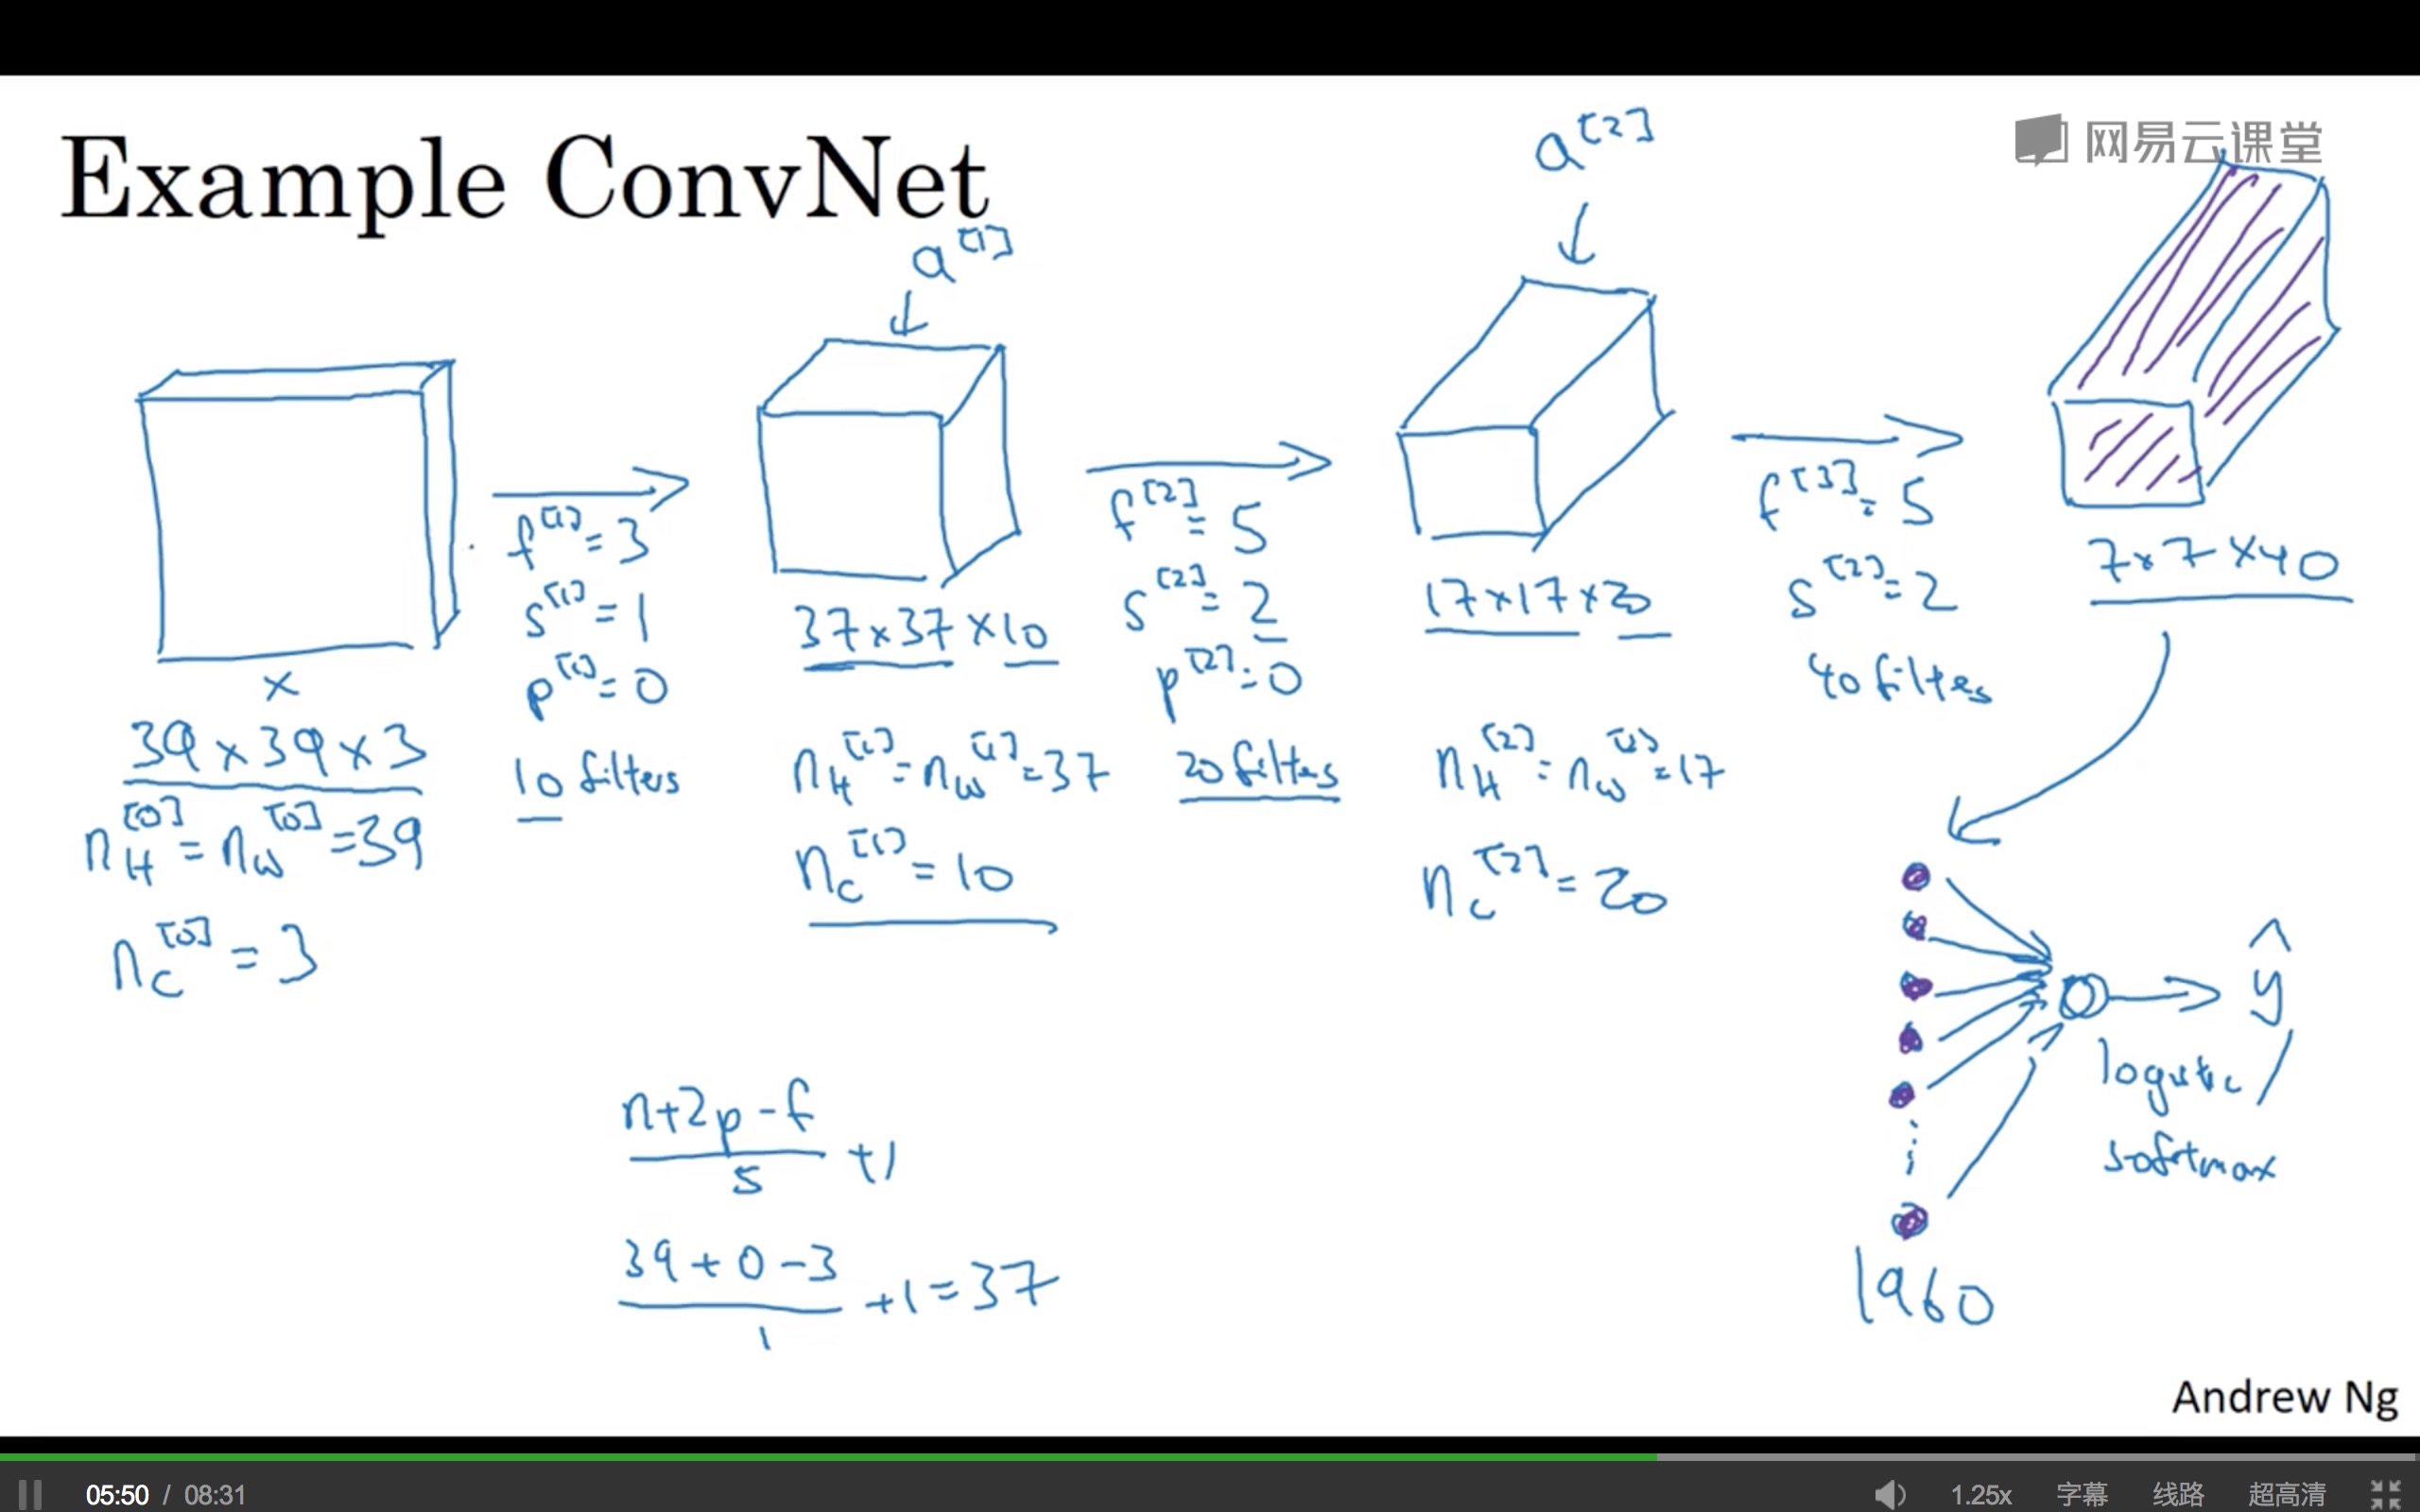 Example ConvNet
网易云课堂
a[1]
a[2]
x
39 x 39 x 3
nH[0] = nW[0] = 39
nC[0] = 3
f[1] = 3
s[1] = 1
p[1] = 0
10 filters
37 x 37 x 10
nH[1] = nW[1] = 37
nC[1] = 10
f[2] = 5
s[2] = 2
p[2] = 0
20 filters
17 x 17 x 20
nH[2] = nW[2] = 17
nC[2] = 20
f[3] = 5
s[2] = 2
40 filters
7 x 7 x 40
ŷ
logistic /
softmax
1960
n+2p-f
s +1
39 + 0 - 3
1 +1 = 37
Andrew Ng
05:50 / 08:31
1.25x 字幕 线路 超高清